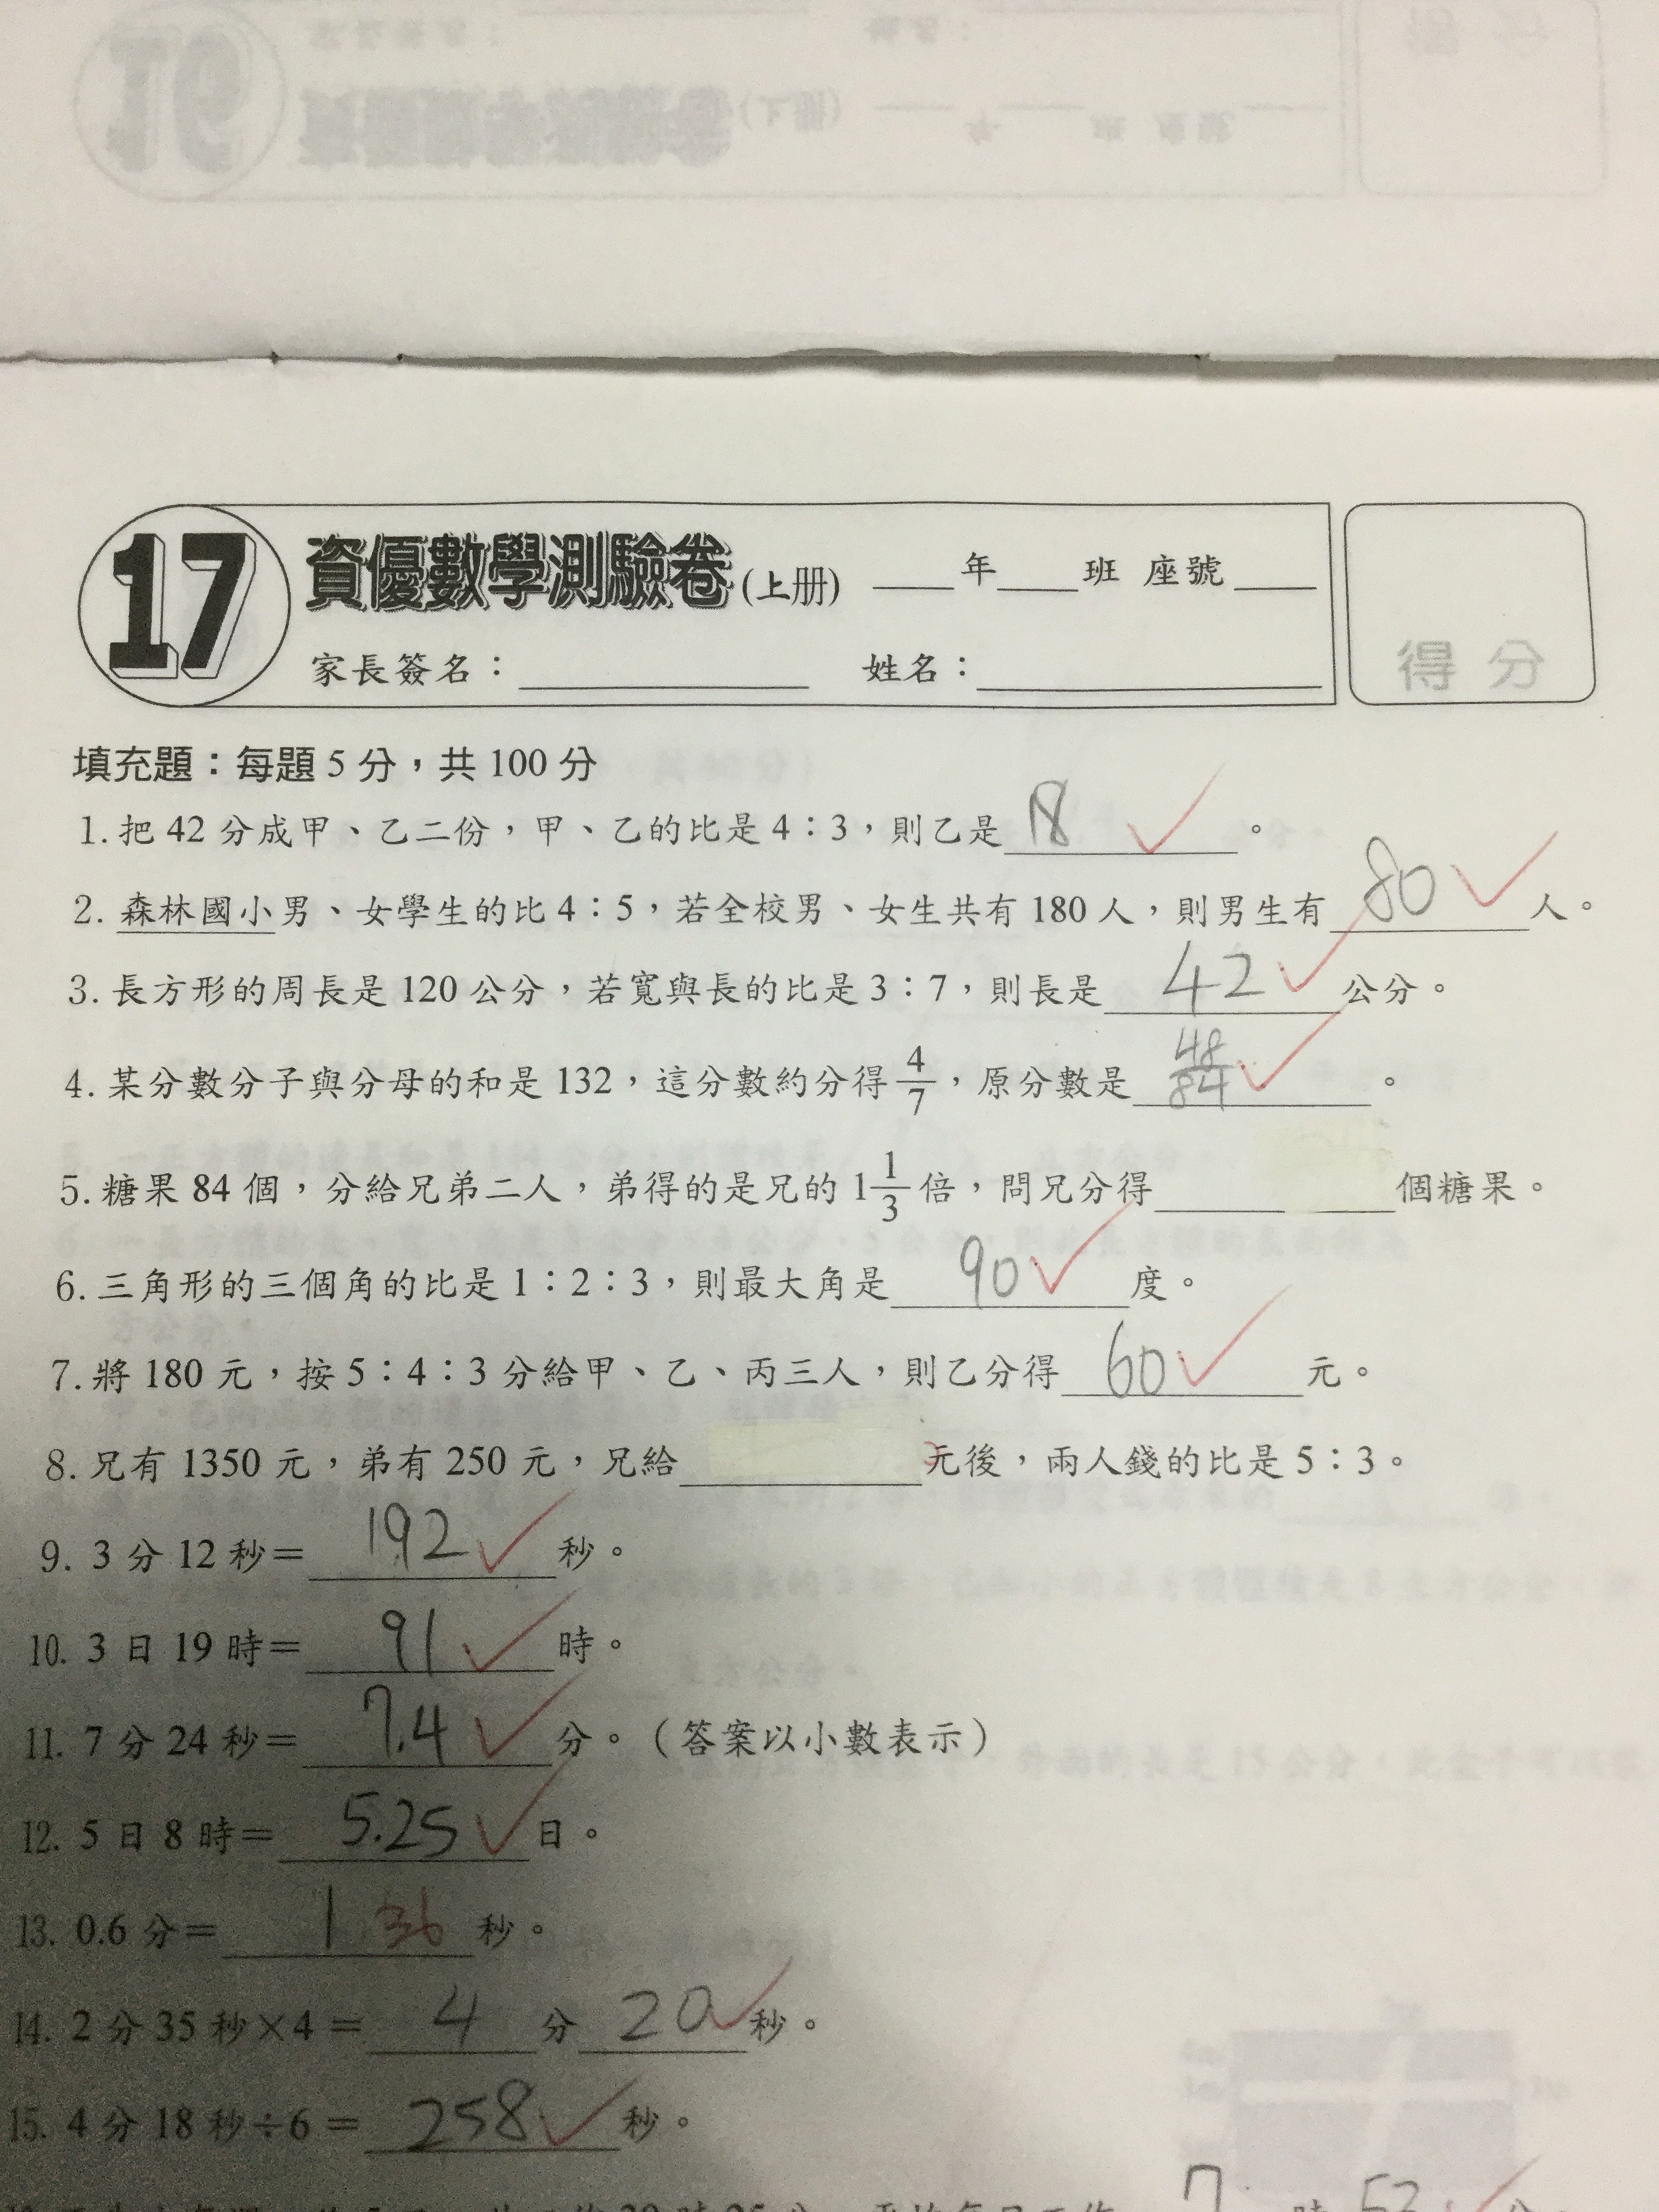 17 資優數學測驗卷(上册) ____年____班 座號____
家長簽名：________ 姓名：________
得分
填充題：每題5分，共100分
1. 把42分成甲、乙二份，甲、乙的比是4：3，則乙是18。
2. 森林國小男、女學生的比4：5，若全校男、女生共有180人，則男生有80人。
3. 長方形的周長是120公分，若寬與長的比是3：7，則長是42公分。
4. 某分數分子與分母的和是132，這分數約分得4/7，原分數是48/84。
5. 糖果84個，分給兄弟二人，弟得的是兄的1 1/3倍，問兄分得________個糖果。
6. 三角形的三個角的比是1：2：3，則最大角是90度。
7. 將180元，按5：4：3分給甲、乙、丙三人，則乙分得60元。
8. 兄有1350元，弟有250元，兄給________元後，兩人錢的比是5：3。
9. 3分12秒＝192秒。
10. 3日19時＝91時。
11. 7分24秒＝7.4分。（答案以小數表示）
12. 5日8時＝5.25日。
13. 0.6分＝1 36秒。
14. 2分35秒×4＝4分20秒。
15. 4分18秒÷6＝258秒。